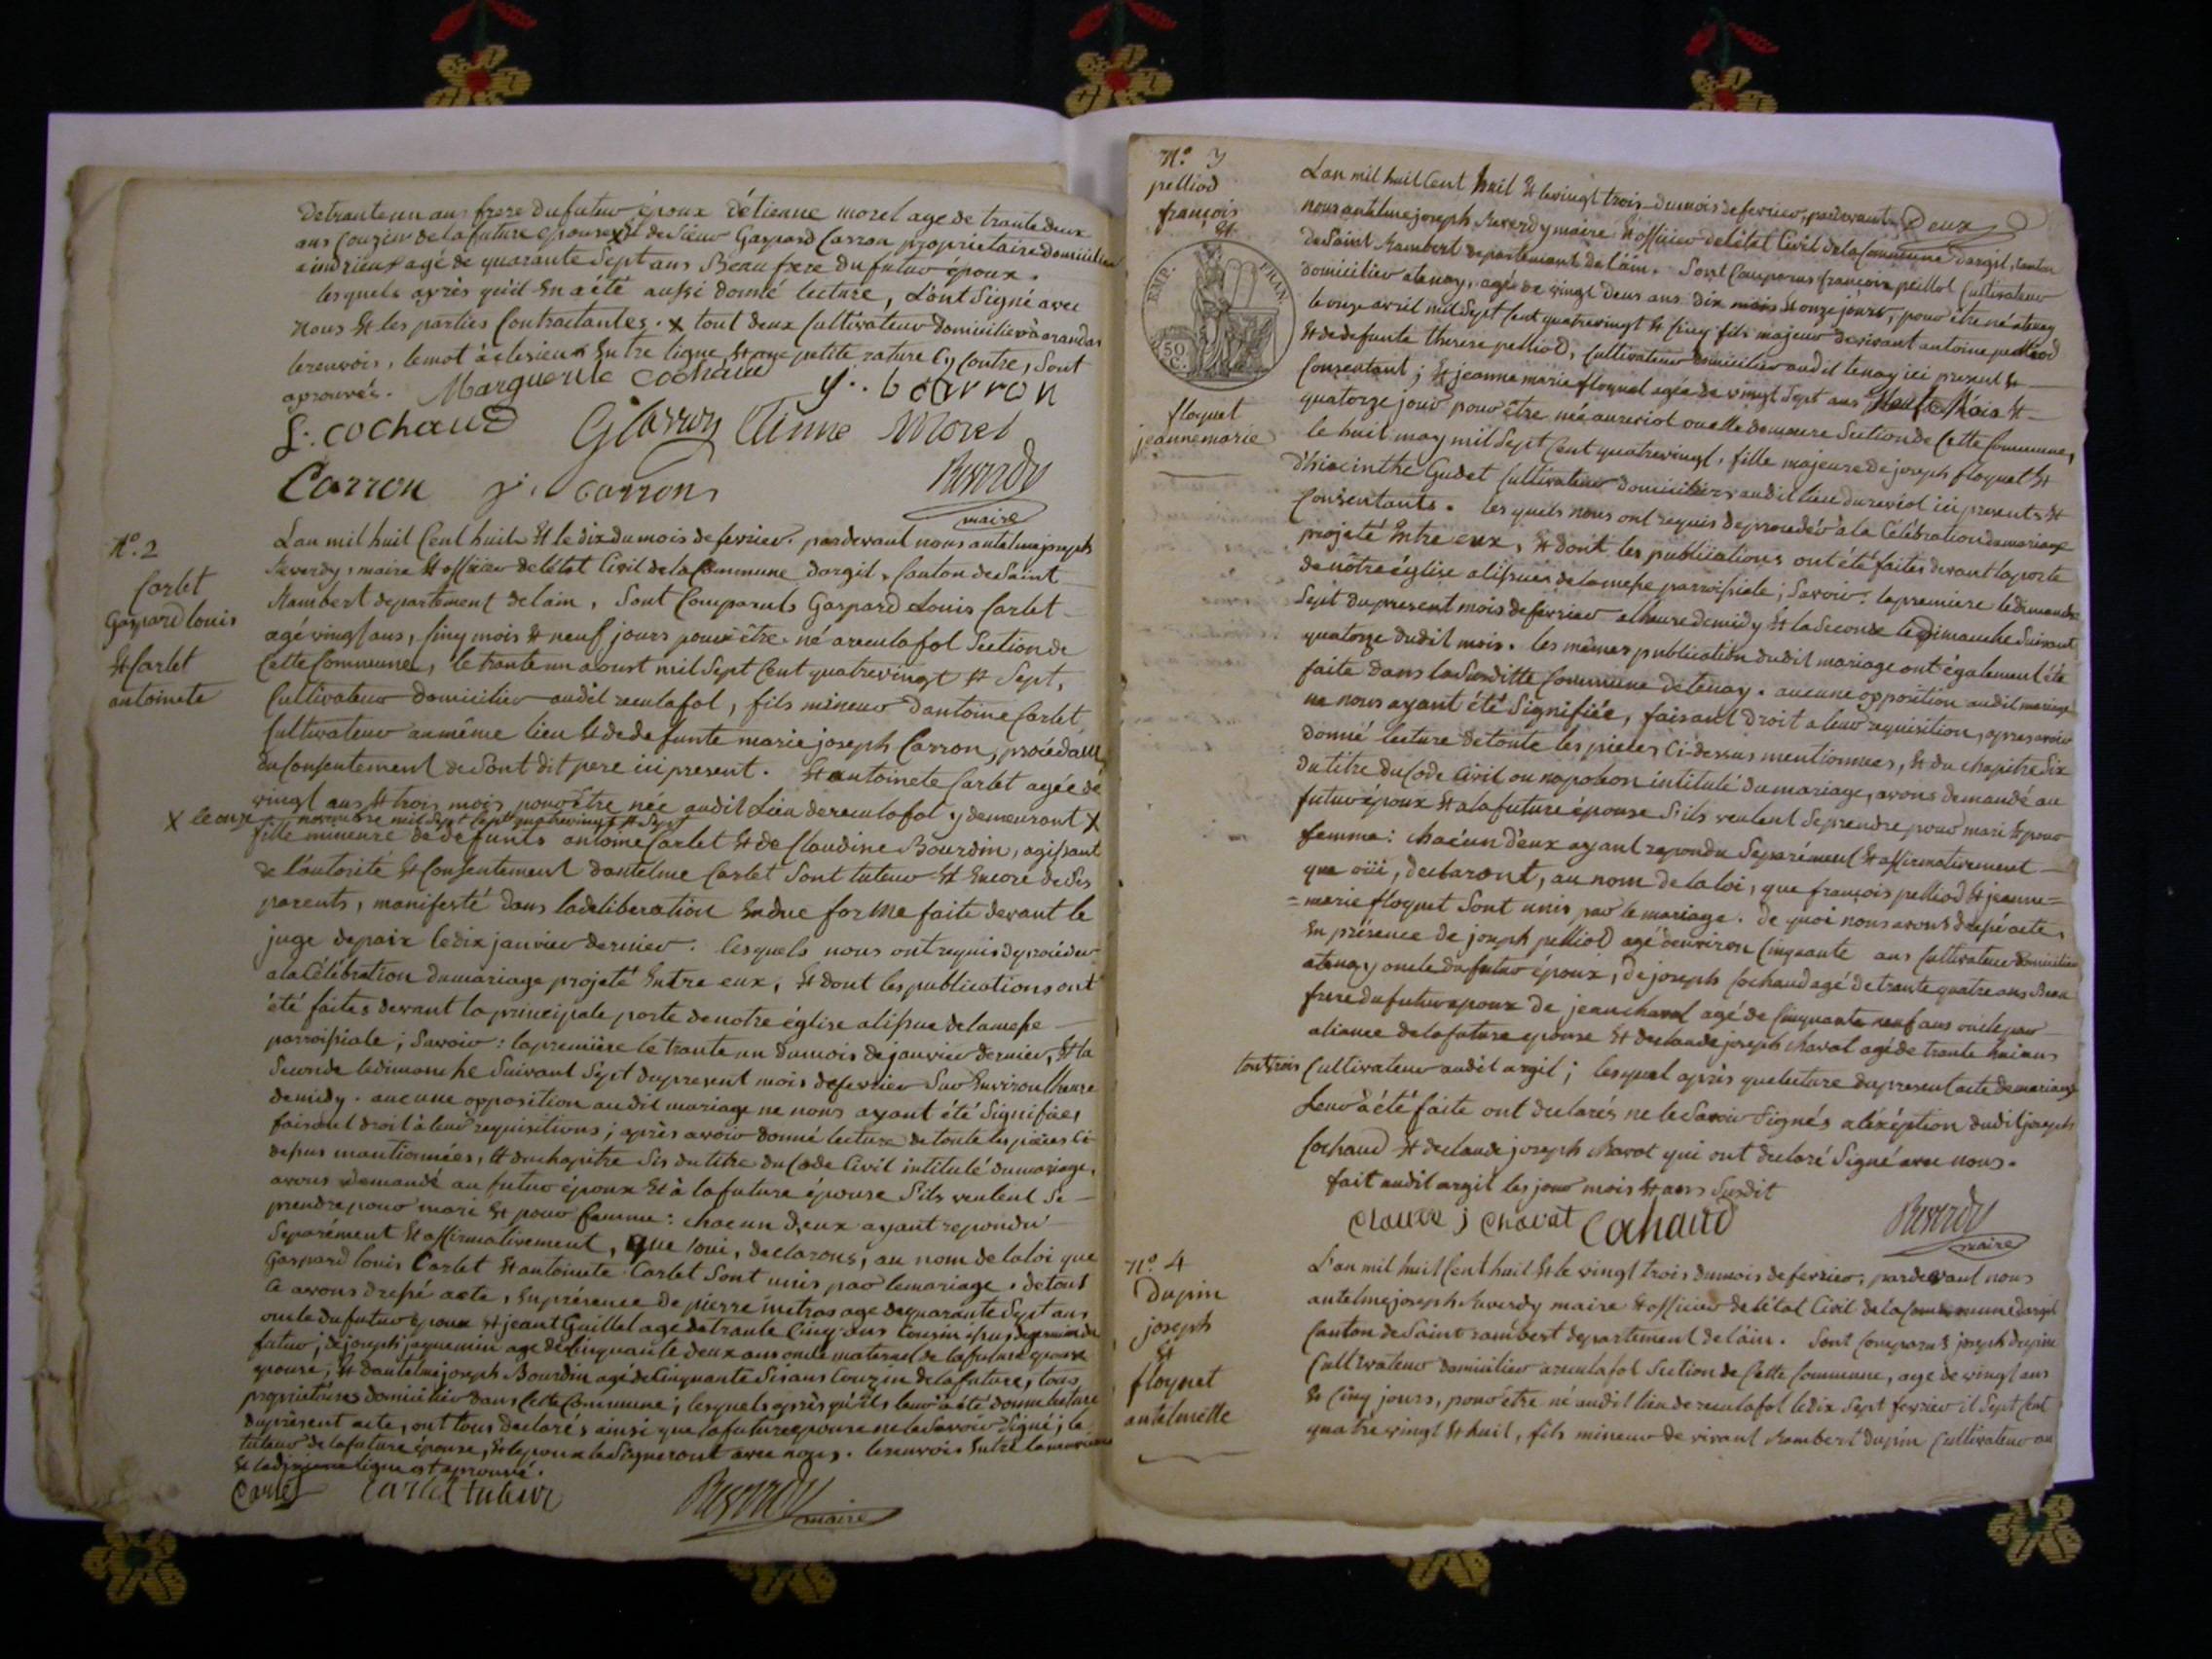 de trante un ans frere du futur époux d'étienne morel age de trante deux
ans Couzin de la future épouse X Et de Sieur Gaspard Carron proprietaire domicilier
a indrieux agé de quarante Sept ans Beau frere du futur époux.
lesquels après qu'il En a été aussi donné lecture, L'ont Signé avec
nous Et les parties Contractantes. X tout deux Cultivateur domicilier à arandas
le renvois, le mot Entre ligne, Et une petite rature Cy Contre, Sont
aprouvés. Marguerite Cochaud J. Carron
J. Cochaud G Carron Etienne Morel
Carron j. Carron Reverdy
maire
N.º 2
Carlet
Gaspard louis
Et Carlet
antoinete
L'an mil huit Cent huit Et le dix du mois de fevrier. pardevant nous antelme joseph
Reverdy, maire Et officier de l'état Civil de la Commune d'argil, Canton de Saint
Rambert departement de lain, Sont Comparuts Gaspard Louis Carlet
agé vingt ans, Cinq mois Et neuf jours pour être né a reculafol Section de
Cette Commune, le trante un aoust mil Sept Cent quatrevingt Et Sept,
Cultivateur domicilier audit reculafol, fils mineur d'antoine Carlet
Cultivateur au même lieu Et de defunte marie joseph Carron, procédant
du Consentement de Sont dit pere ici present. Et antoinete Carlet agée de
vingt ans Et trois mois pour être née audit Lieu de reculafol y demeurant X
X le onze novembre mil Sept Cent quatrevingt Et Sept
fille mineure de defunts antoine Carlet Et de Claudine Bourdin, agissant
de l'autorité Et Consentement d'antelme Carlet Sont tuteur Et Encore de Ses
parents, manifesté dans la deliberation En due forme faite devant le
juge de paix le dix janvier dernier. lesquels nous ont requis de procéder
a la Célébration du mariage projeté Entre eux, Et dont les publications ont
été faites devant la principale porte de notre église a lissue de la messe
parroissiale; Savoir: la première le trante un du mois de janvier dernier, Et la
Seconde le dimanche Suivant Sept du present mois de fevrier Sur Environ l'heure
de midy. aucune opposition audit mariage ne nous ayant été Signifiée,
faisant droit à leur requisitions; après avoir donné lecture de toute les pieces Ci
dessus mantionnées, Et du chapitre Six du titre du Code Civil intitulé du mariage,
avons demandé au futur époux Et à la future épouse S'ils veulent Se
prendre pour mari Et pour femme: chacun d'eux ayant repondu
Separément Et affirmativement, que oui, declarons, au nom de la loi que
Gaspard louis Carlet Et antoinete Carlet Sont unis par le mariage. de tout
Ce avons dressé acte, En présence de pierre métras age de quarante Sept ans
oncle du futur époux Et jeant Guillet age de trante Cinq ans Cousin
futur; de joseph jaquemin age de Cinquante deux ans oncle maternel de la future epouse
epouse; Et d'antelme joseph Bourdin agé de Cinquante Six ans Couzin de la future, tous
proprietaires domicilier dans Cette Commune; lesquels après qu'ils leur a été donné lecture
du présent acte, ont tous declarés ainsi que la future epouse ne le Savoir Signé; le
tuteur de la future épouse, Et l'epoux le Signeront avec nous. le renvois Entre la
Et la ligne est aprouvé.
Carlet Carlet tuteur Reverdy
maire
N.º 3
pelliod
françois
Et
EMP. FRAN.
50
C.
floquet
jeanne marie
L'an mil huit Cent huit Et le vingt trois du mois de fevrier, pardevant Deux
nous antelme joseph Reverdy maire Et officier de l'état Civil de la Commune d'argil, Canton
de Saint Rambert departement de l'ain. Sont Comparus françois peillot Cultivateur
domicilier a tenay, agé de vingt deux ans dix mois Et onze jours, pour être né a tenay
le onze avril mil Sept Cent quatrevingt Et Cinq fils majeur de vivant antoine pelliod
Et de defunte therese pelliod, Cultivateur domicilier audit tenay ici present Et
Consentant; Et jeanne marie floquet agée de vingt Sept ans Neuf Mois Et
quatorze jour pour être née au reviol ou elle demeure Section de Cette Commune,
le huit may mil Sept Cent quatrevingt, fille majeure de joseph floquet Et
d'hiacinthe Gudet Cultivateur domiciliers audit lieu du reviol ici presents Et
Consentants. les quels nous ont requis de proceder a la Célébration du mariage
projeté Entre eux, Et dont les publications ont été faites devant la porte
de nôtre église a lissue de la messe parroissiale; Savoir: la premiere le dimanche
Sept du present mois de fevrier a lheure de midy Et la Seconde le Dimanche Suivant
quatorze dudit mois. les mêmes publication dudit mariage ont également été
faite dans la Susditte Commune de tenay. aucune opposition audit mariage
ne nous ayant été Signifiée, faisant droit a leur requisition, apres avoir
donné lecture de toute les pieces Ci-dessus mentionnées, Et du chapitre Six
du titre du Code Civil ou napoleon intitulé du mariage, avons demandé au
futur époux Et a la future épouse S'ils veulent Se prendre pour mari Et pour
femme: chacun d'eux ayant repondu Separément Et affirmativement
que oüi, declaront, au nom de la loi, que françois pelliod Et jeanne=
=marie floquet Sont unis par le mariage. de quoi nous avons dressé acte,
En présence de joseph pelliod agé d'environ Cinquante ans Cultivateur domicilier
a tenay oncle du futur époux, de joseph Cochaud agé de trante quatre ans Beau
frere du futur epoux de jean chavat agé de Cinquante neuf ans oncle par
aliance de la future epouse Et de claude joseph chavat agé de trante huit ans
tout trois Cultivateur audit argil; lesquel après que lecture du present acte de mariage
Leur a été faite ont declarés ne le Savoir Signés a l'éxéption dudit joseph
Cochaud Et de claude joseph Chavat qui ont declaré Signé avec nous.
fait audit argil les jour mois Et ans Susdit
Claude j Chavat Cochaud Reverdy
maire
N.º 4
Dupin
joseph
Et
floquet
antelmette
L'an mil huit Cent huit Et le vingt trois du mois de fevrier, pardevant nous
antelme joseph Reverdy maire Et officier de l'état Civil de la Commune d'argil
Canton de Saint rambert departement de l'ain. Sont Comparus joseph dupin
Cultivateur domicilier a reculafol Section de Cette Commune, age de vingt ans
Et Cinq jours, pour être né audit lieu de reculafol le dix Sept fevrier Sept Cent
quatre vingt Et huit, fils mineur de vivant Rambert dupin Cultivateur au